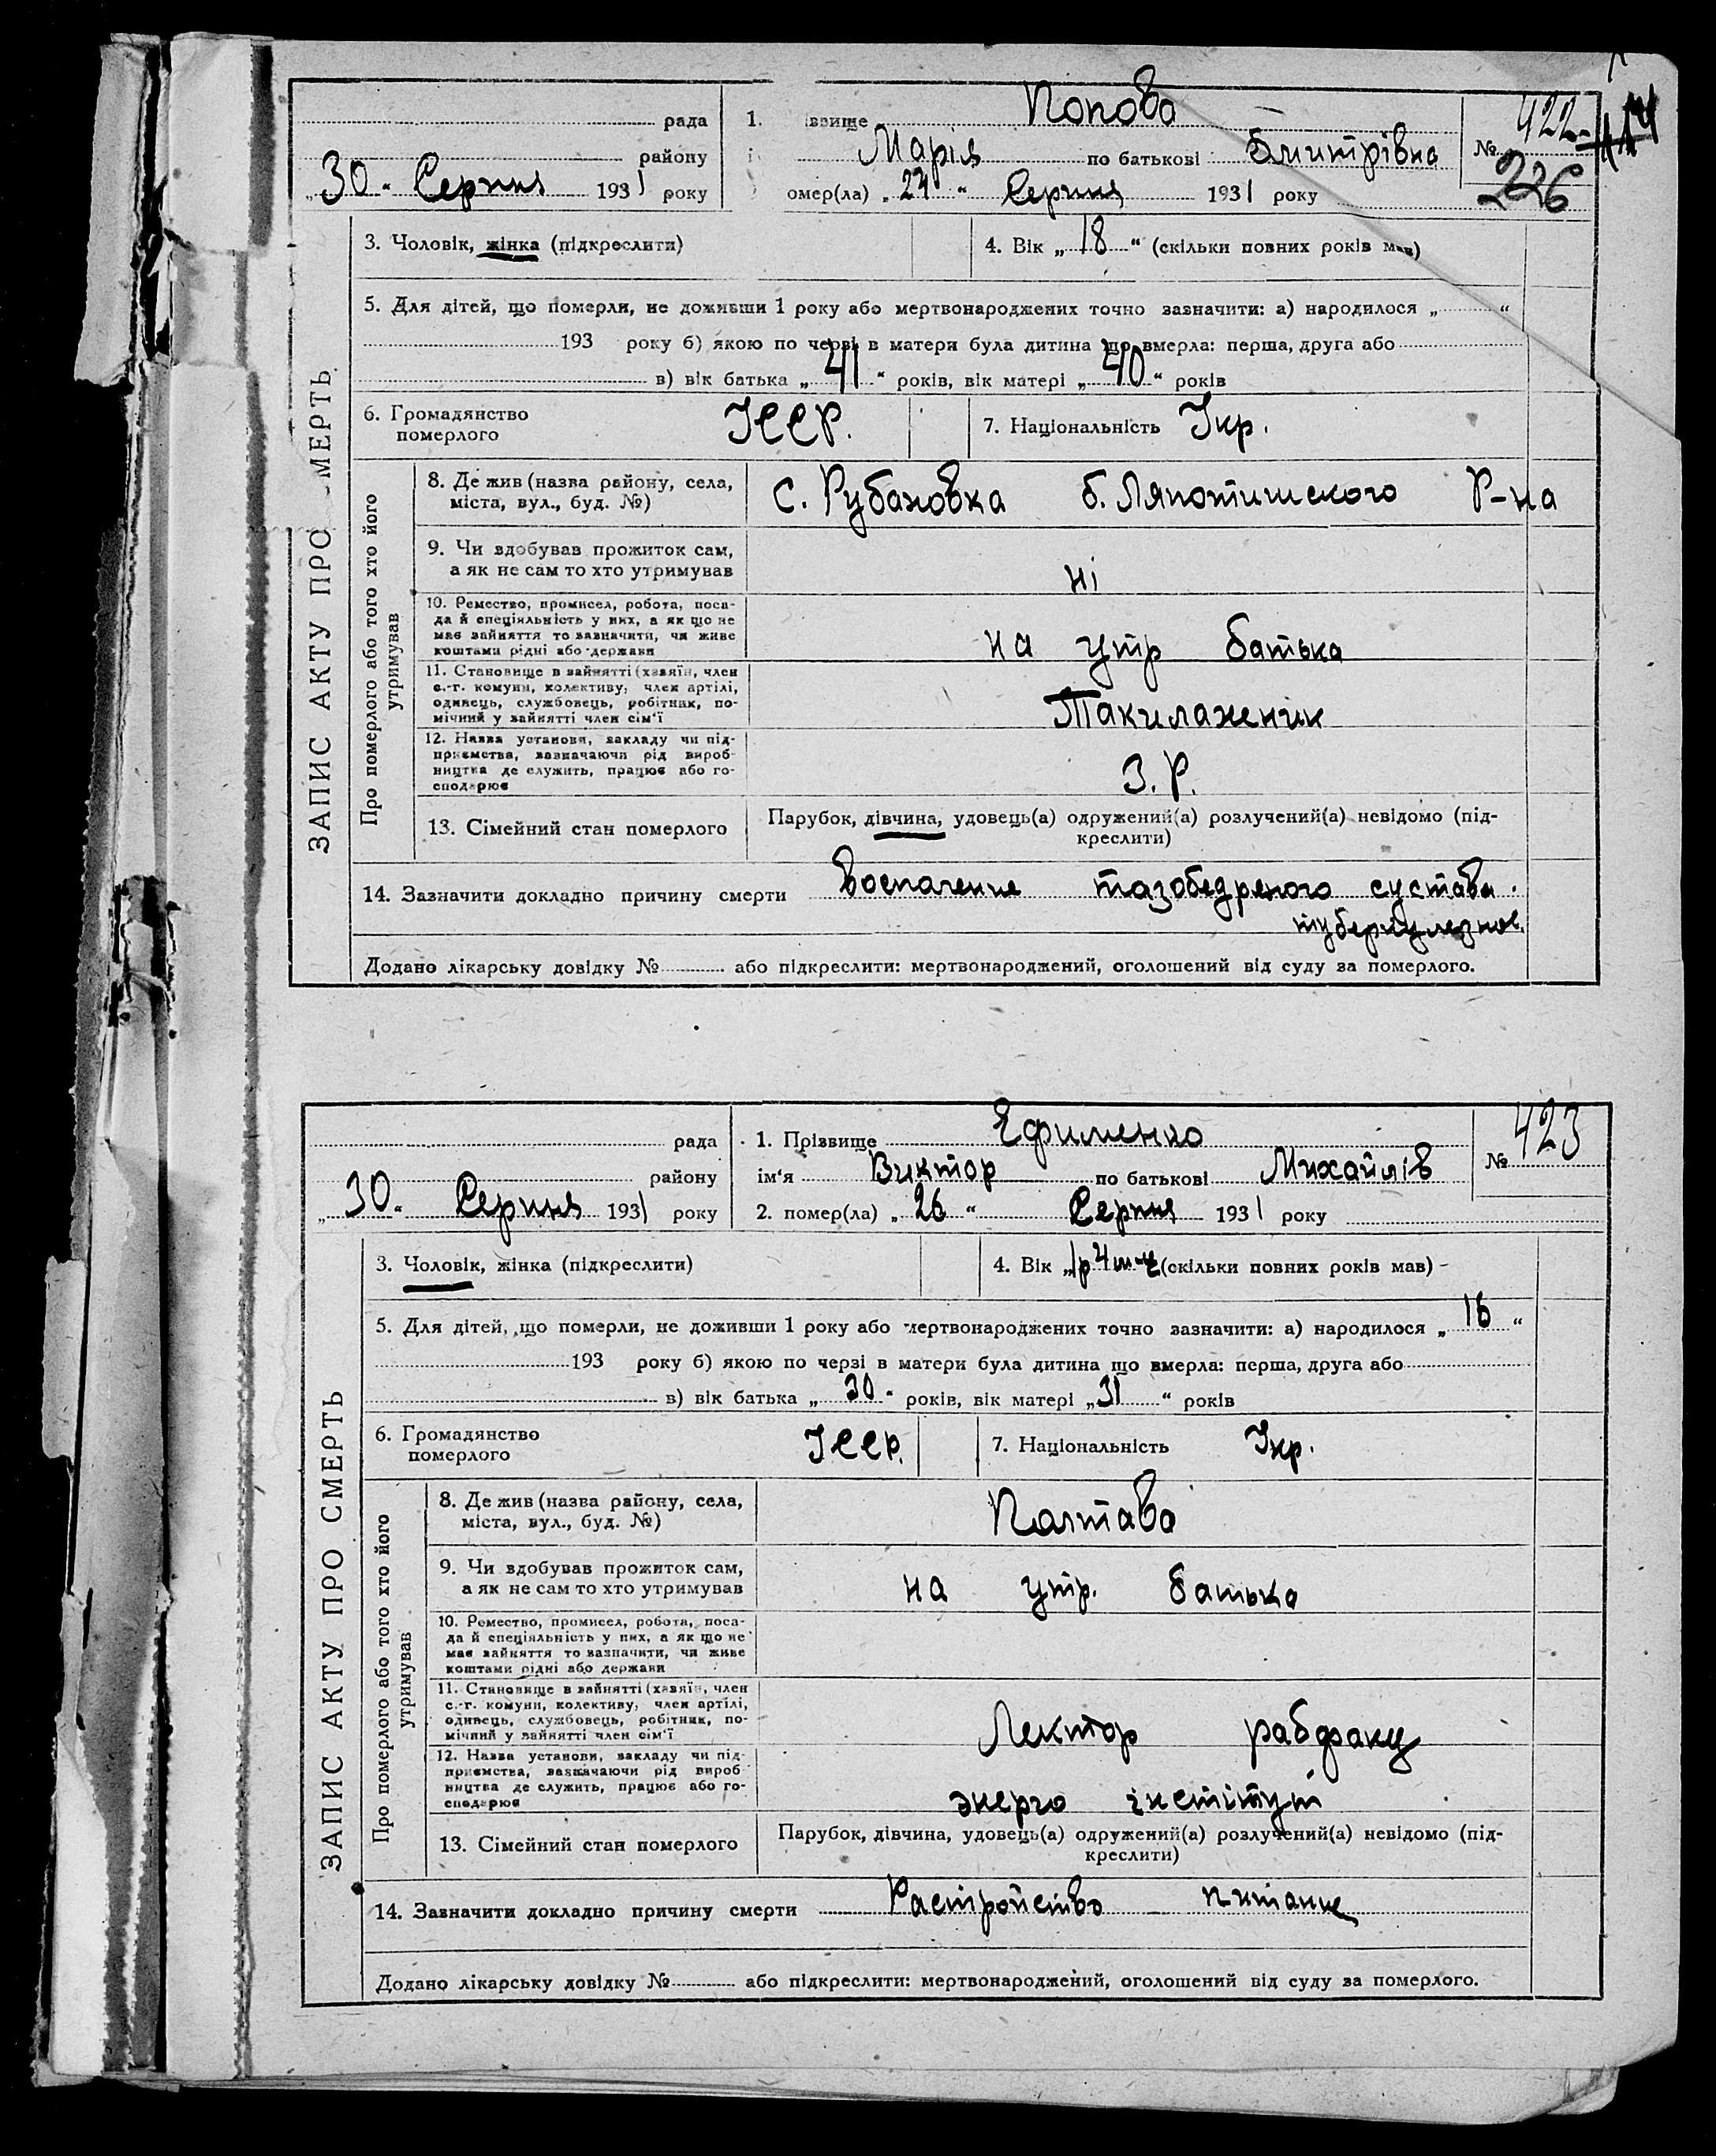 рада
1. ізвище Попова
№ 422
району
Марія по батькові Дмитрівна
226
„30“ Серпня 1931 року
омер(ла) „24“ Серпня 1931 року
3. Чоловік, жінка (підкреслити)
4. Вік „18“ (скільки повних років мав)
5. Для дітей, що померли, не доживши 1 року або мертвонароджених точно зазначити: а) народилося „ “
193 року б) якою по черзі в матери була дитина що вмерла: перша, друга або
в) вік батька „41“ років, вік матері „40“ років
6. Громадянство
померлого
УССР.
7. Національність Укр.
ЗАПИС АКТУ ПРО МЕРТЬ
Про померлого або того хто його
утримував
8. Де жив (назва району, села,
міста, вул., буд. №)
с. Рубановка б. Р-на
9. Чи вдобував прожиток сам,
а як не сам то хто утримував
ні
10. Ремество, промисел, робота, поса-
да й спеціяльність у них, а як що не
має зайняття то зазначити, чи живе
коштами рідні або держави
на утр батька
11. Становище в зайнятті (хазяїн, член
с.-г. комуни, колективу, член артілі,
одинець, службовець, робітник, по-
мічний у зайнятті член сім‘ї
12. Назва установи, закладу чи під-
приємства, зазначаючи рід вироб-
ництва де служить, працює або го-
сподарює
З. Р.
13. Сімейний стан померлого
Парубок, дівчина, удовець(а) одружений(а) розлучений(а) невідомо (під-
креслити)
14. Зазначити докладно причину смерти воспаление тазобедреного сустава.
туберкулезное.
Додано лікарську довідку № або підкреслити: мертвонароджений, оголошений від суду за померлого.
рада
1. Прізвище Ефименко
№ 423
району
ім‘я Виктор по батькові Михайлів
„30“ Серпня 1931 року
2. помер(ла) „26“ Серпня 1931 року
3. Чоловік, жінка (підкреслити)
4. Вік „1р 4 м-ц (скільки повних років мав)
5. Для дітей, що померли, не доживши 1 року або мертвонароджених точно зазначити: а) народилося „16“
193 року б) якою по черзі в матери була дитина що вмерла: перша, друга або
в) вік батька „30“ років, вік матері „31“ років
6. Громадянство
померлого
УССР.
7. Національність Укр.
ЗАПИС АКТУ ПРО СМЕРТЬ
Про померлого або того хто його
утримував
8. Де жив (назва району, села,
міста, вул., буд. №)
Полтава
9. Чи вдобував прожиток сам,
а як не сам то хто утримував
на утр. батька
10. Ремество, промисел, робота, поса-
да й спеціяльність у них, а як що не
має зайняття то зазначити, чи живе
коштами рідні або держави
11. Становище в зайнятті (хазяїн, член
с.-г. комуни, колективу, член артілі,
одинець, службовець, робітник, по-
мічний у зайнятті член сім‘ї
Лектор рабфаку
12. Назва установи, закладу чи під-
приємства, зазначаючи рід вироб-
ництва де служить, працює або го-
сподарює
энерго інстітут
13. Сімейний стан померлого
Парубок, дівчина, удовець(а) одружений(а) розлучений(а) невідомо (під-
креслити)
14. Зазначити докладно причину смерти Растройство питание
Додано лікарську довідку № або підкреслити: мертвонароджений, оголошений від суду за померлого.